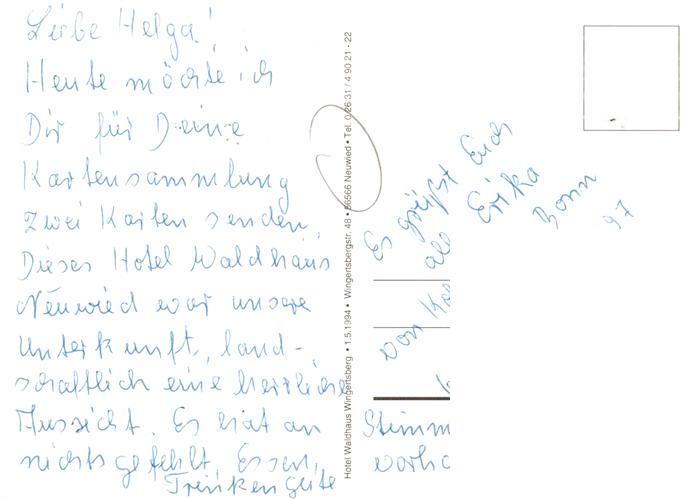 Liebe Helga!
Heute möchte ich
Dir für Deine
Kartensammlung
zwei Karten senden.
Dieses Hotel Waldhaus
Neuwied war unsere
Unterkunft, land-
schaftlich eine herrliche
Aussicht. Es hat an
nichts gefehlt. Essen,
Trinken gute
Stimm
vorha
Hotel Waldhaus Wingertsberg • 1.5.1994 • Wingertsbergstr. 48 • 56566 Neuwied • Tel. 0 26 31 / 4 90 21 - 22
Es grüßt Euch
alle Erika
Bonn
97
von